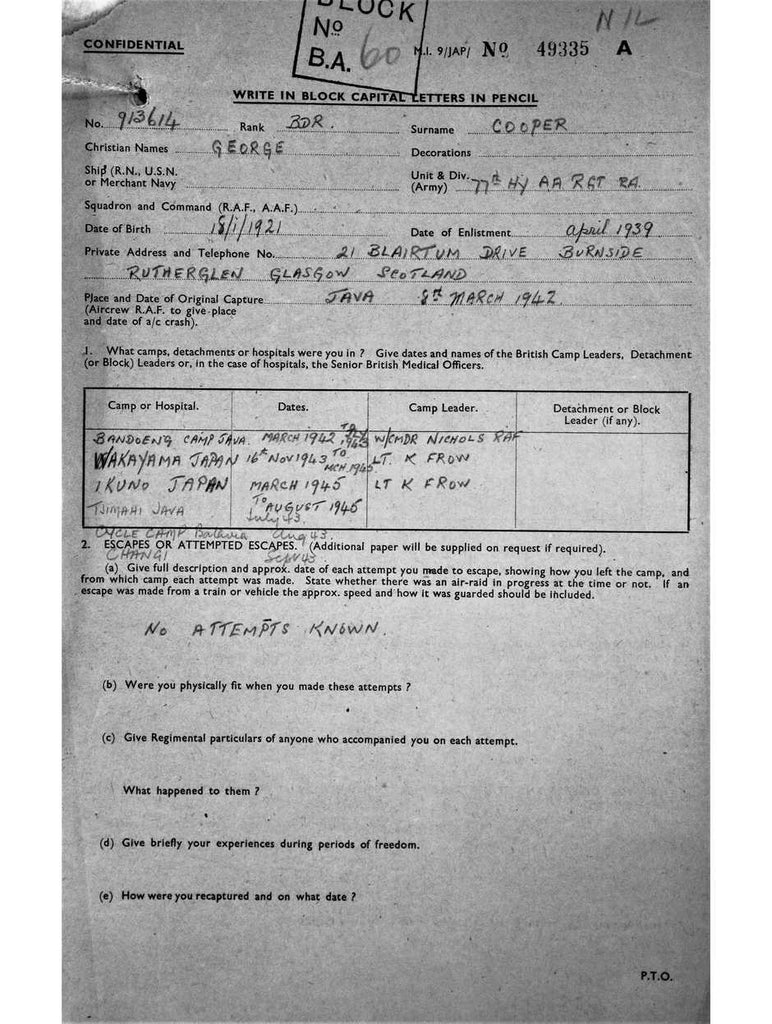 BLOCK
No
B.A. 60
NIL
CONFIDENTIAL
M.I. 9/JAP/ No 49335 A
WRITE IN BLOCK CAPITAL LETTERS IN PENCIL
No. 913614 Rank BDR. Surname COOPER
Christian Names GEORGE Decorations
Ship (R.N., U.S.N. or Merchant Navy
Unit & Div. (Army) 77th Hy AA RGT RA.
Squadron and Command (R.A.F., A.A.F.)
Date of Birth 18/1/1921 Date of Enlistment april 1939
Private Address and Telephone No. 21 BLAIRTUM DRIVE BURNSIDE
RUTHERGLEN GLASGOW SCOTLAND
Place and Date of Original Capture JAVA 8th MARCH 1942.
(Aircrew R.A.F. to give place
and date of a/c crash).
1. What camps, detachments or hospitals were you in ? Give dates and names of the British Camp Leaders, Detachment
(or Block) Leaders or, in the case of hospitals, the Senior British Medical Officers.
Camp or Hospital. Dates. Camp Leader. Detachment or Block
Leader (if any).
BANDOENG CAMP JAVA. MARCH 1942 TO 1943 W/CMDR NICHOLS RAF
WAKAYAMA JAPAN 16th NOV 1943 TO MCH 1945 LT. K FROW
IKUNO JAPAN MARCH 1945 LT K FROW
TJIMAHI JAVA TO AUGUST 1945
July 43.
CYCLE CAMP Batavia Aug 43.
2. ESCAPES OR ATTEMPTED ESCAPES. (Additional paper will be supplied on request if required).
CHANGI Sept 43
(a) Give full description and approx. date of each attempt you made to escape, showing how you left the camp, and
from which camp each attempt was made. State whether there was an air-raid in progress at the time or not. If an
escape was made from a train or vehicle the approx. speed and how it was guarded should be included.
NO ATTEMPTS KNOWN.
(b) Were you physically fit when you made these attempts ?
(c) Give Regimental particulars of anyone who accompanied you on each attempt.
What happened to them ?
(d) Give briefly your experiences during periods of freedom.
(e) How were you recaptured and on what date ?
P.T.O.